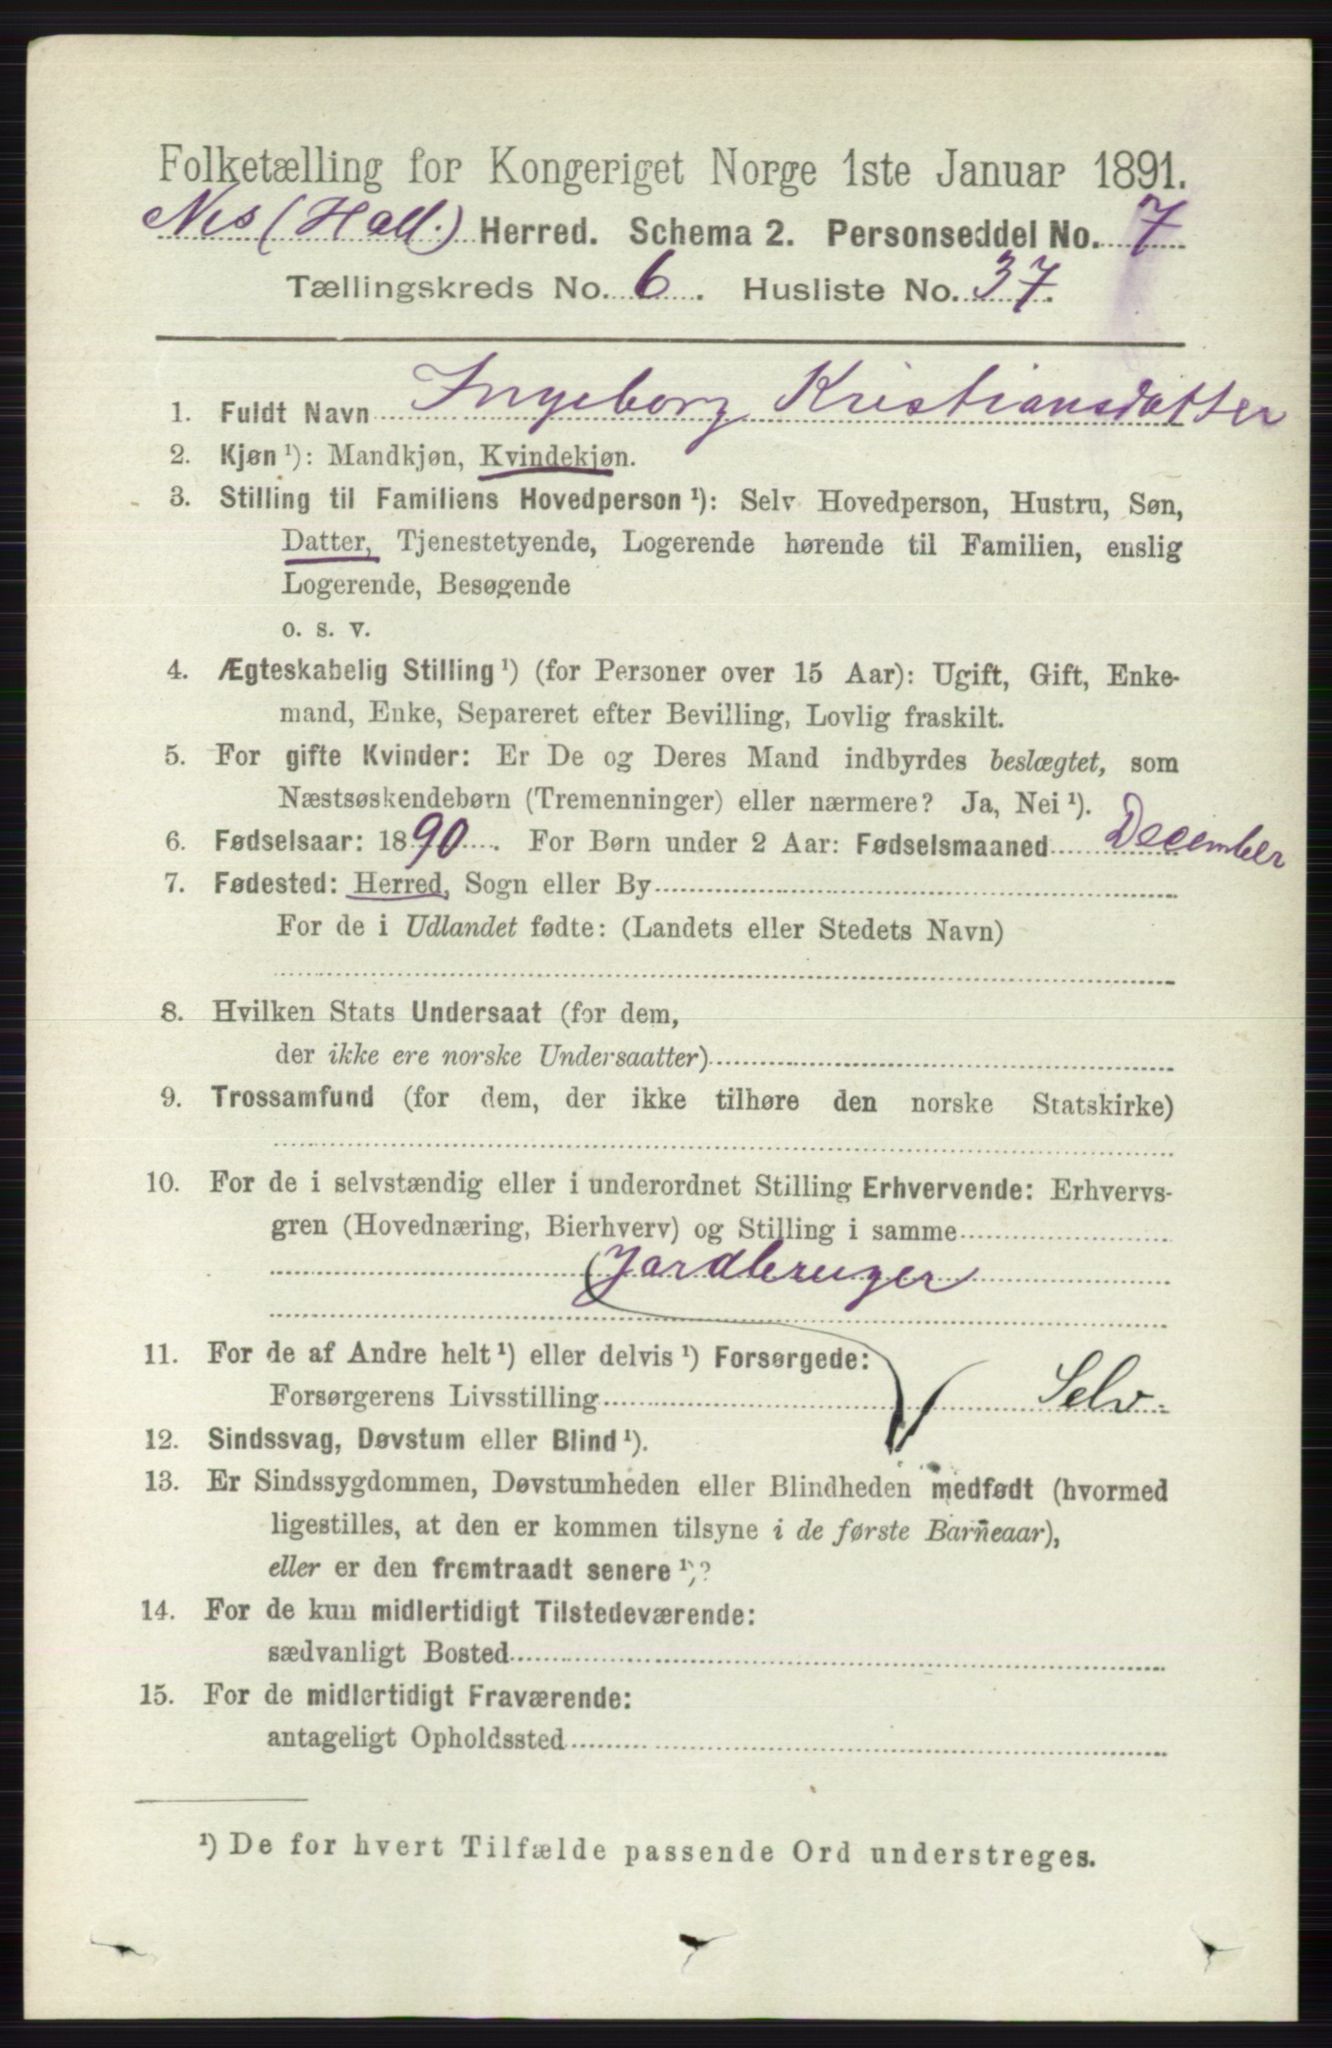 Folketælling for Kongeriget Norge 1ste Januar 1891.
Nes (Hall.) Herred. Schema 2. Personseddel No. 7
Tællingskreds No. 6. Husliste No. 37.
1. Fuldt Navn Ingeborg Kristiansdatter
2. Kjøn ¹): Mandkjøn, Kvindekjøn.
3. Stilling til Familiens Hovedperson ¹): Selv Hovedperson, Hustru, Søn,
Datter, Tjenestetyende, Logerende hørende til Familien, enslig
Logerende, Besøgende
o. s. v.
4. Ægteskabelig Stilling ¹) (for Personer over 15 Aar): Ugift, Gift, Enke-
mand, Enke, Separeret efter Bevilling, Lovlig fraskilt.
5. For gifte Kvinder: Er De og Deres Mand indbyrdes beslægtet, som
Næstsøskendebørn (Tremenninger) eller nærmere? Ja, Nei ¹).
6. Fødselsaar: 1890. For Børn under 2 Aar: Fødselsmaaned December
7. Fødested: Herred, Sogn eller By
For de i Udlandet fødte: (Landets eller Stedets Navn)
8. Hvilken Stats Undersaat (for dem,
der ikke ere norske Undersaatter)
9. Trossamfund (for dem, der ikke tilhøre den norske Statskirke)
10. For de i selvstændig eller i underordnet Stilling Erhvervende: Erhvervs-
gren (Hovednæring, Bierhverv) og Stilling i samme
Jardbruger
11. For de af Andre helt ¹) eller delvis ¹) Forsørgede:
Forsørgerens Livsstilling Selv.
12. Sindssvag, Døvstum eller Blind ¹).
13. Er Sindssygdommen, Døvstumheden eller Blindheden medfødt (hvormed
ligestilles, at den er kommen tilsyne i de første Barneaar),
eller er den fremtraadt senere ¹)?
14. For de kun midlertidigt Tilstedeværende:
sædvanligt Bosted
15. For de midlertidigt Fraværende:
antageligt Opholdssted
¹) De for hvert Tilfælde passende Ord understreges.